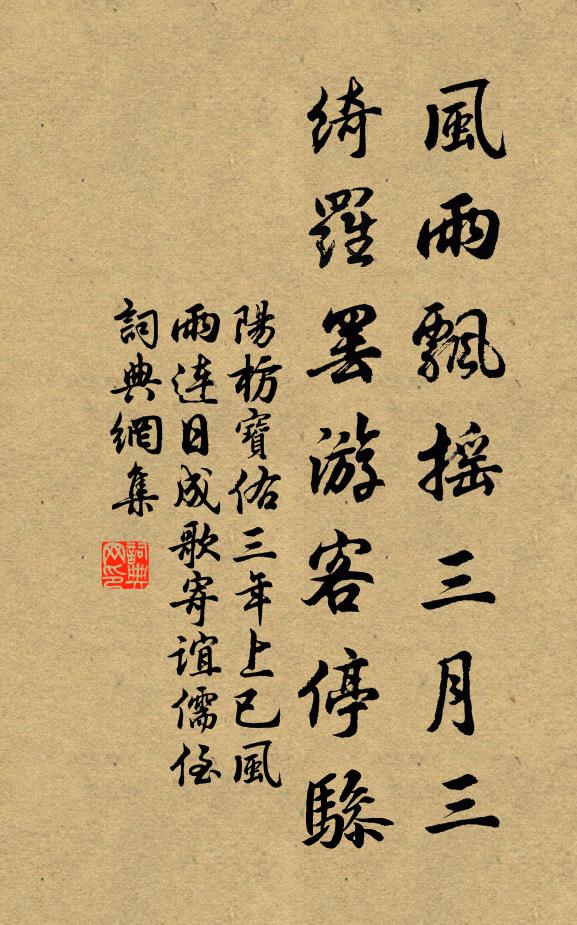 風雨飄搖三月三
綺羅罢游客停驂
陽枋寶佑三年上巳風
雨連日成歌寄誼儒侄
詞典網集
詞典
网印